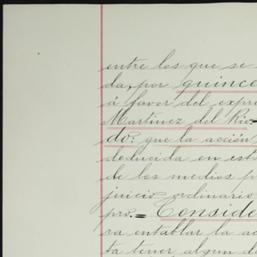 entre los que se
da, por quince
á favor del expr
Martinez del Rio
do: que la acción
deducida en est
de los medios p
juicio ordinario
pro.= Consid
ra entablar la ac
ta tener algun d